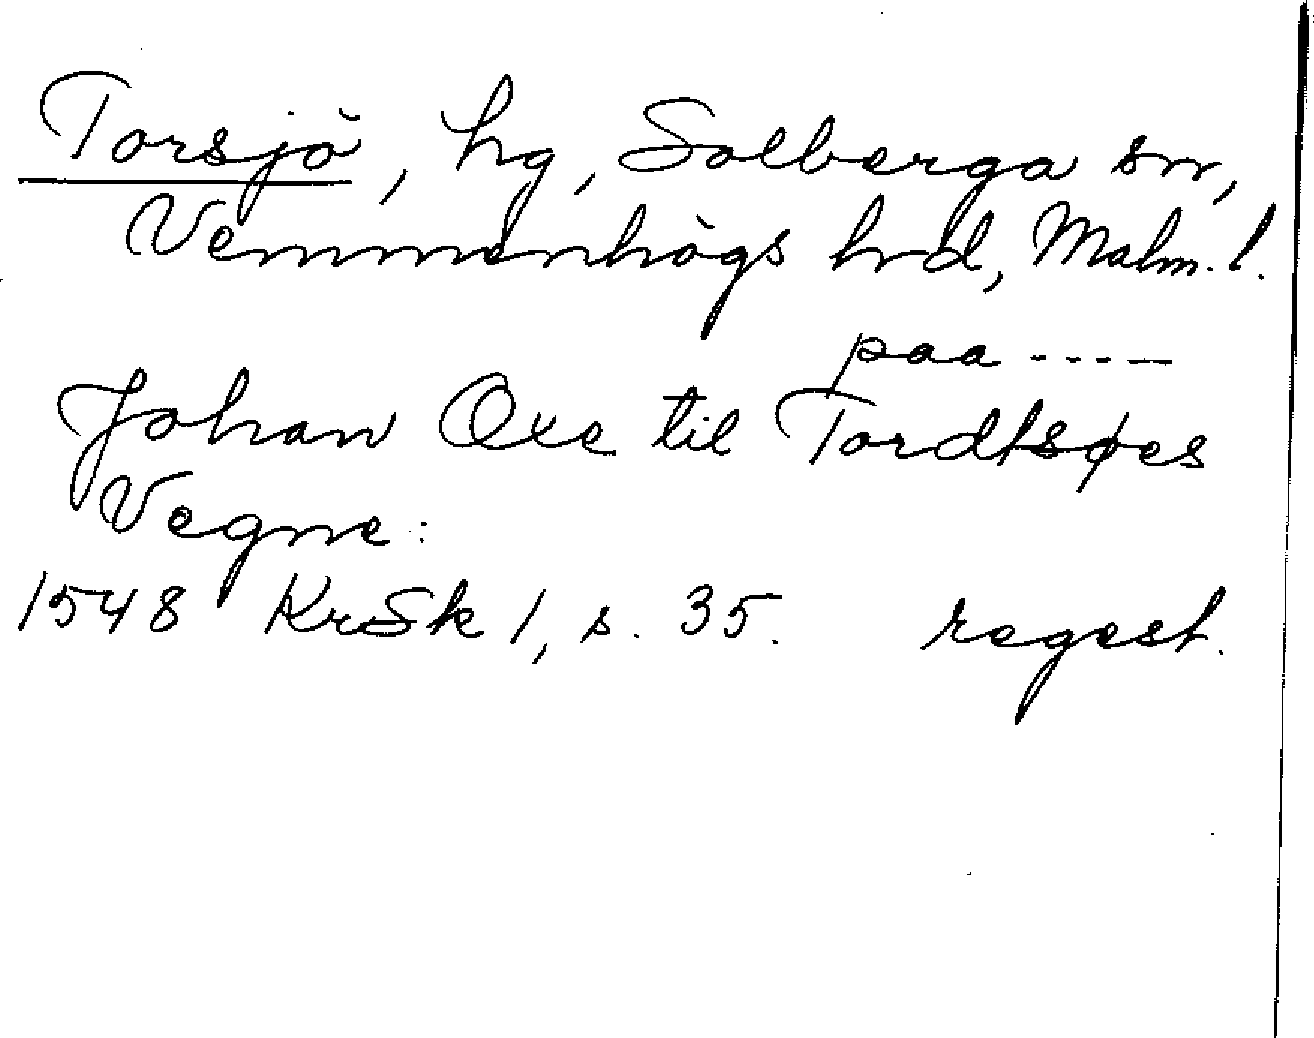 Torsjö, hg, Solberga sn,
Vemmenhögs hrd, Malm. l.
paa -----
Johan Oxe til Tordtsøes
Vegne:
1548 KrSk 1, s. 35. regest.